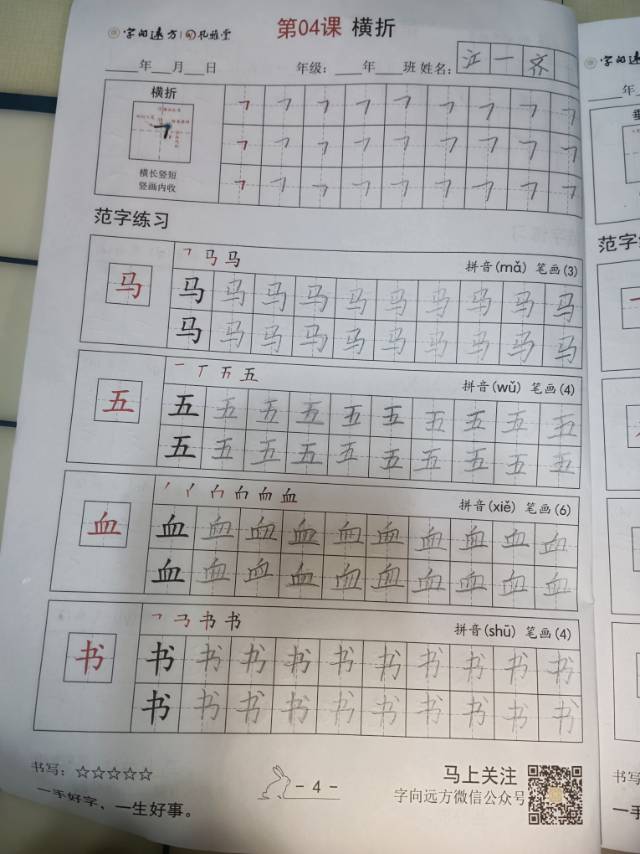 字向远方 孔雅堂 第04课 横折
年 月 日 年级: 年 班 姓名: 江 一 齐
横折
横长竖短
竖画内收
范字练习
马 拼音(mǎ) 笔画(3)
马 马 马 马 马 马 马 马 马 马 马
马 马 马 马 马 马 马 马 马 马
五 拼音(wǔ) 笔画(4)
五 五 五 五 五 五 五 五 五 五 五
五 五 五 五 五 五 五 五 五 五
血 拼音(xiě) 笔画(6)
血 血 血 血 血 血 血 血 血 血 血
血 血 血 血 血 血 血 血 血 血
书 拼音(shū) 笔画(4)
书 书 书 书 书 书 书 书 书 书 书
书 书 书 书 书 书 书 书 书 书
书写: ☆☆☆☆☆
一手好字、一生好事。
- 4 -
马上关注
字向远方微信公众号
年
范字
书写